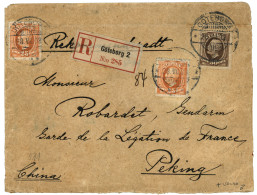 R
Göteborg 2
No 285
84
Monsieur
Robardet, Gendarm
Garde de la Légation de France
Peking
China